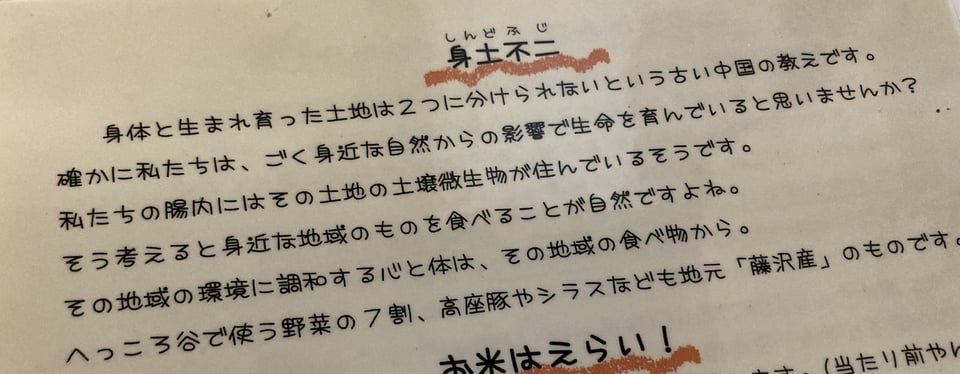 しんどふじ
身土不二
身体と生まれ育った土地は2つに分けられないという古い中国の教えです。
確かに私たちは、ごく身近な自然からの影響で生命を育んでいると思いませんか?
私たちの腸内にはその土地の土壌微生物が住んでいるそうです。
そう考えると身近な地域のものを食べることが自然ですよね。
その地域の環境に調和する心と体は、その地域の食べ物から。
へっころ谷で使う野菜の7割、高座豚やシラスなども地元「藤沢産」のものです。
お米はえらい!
ます。(当たり前やん